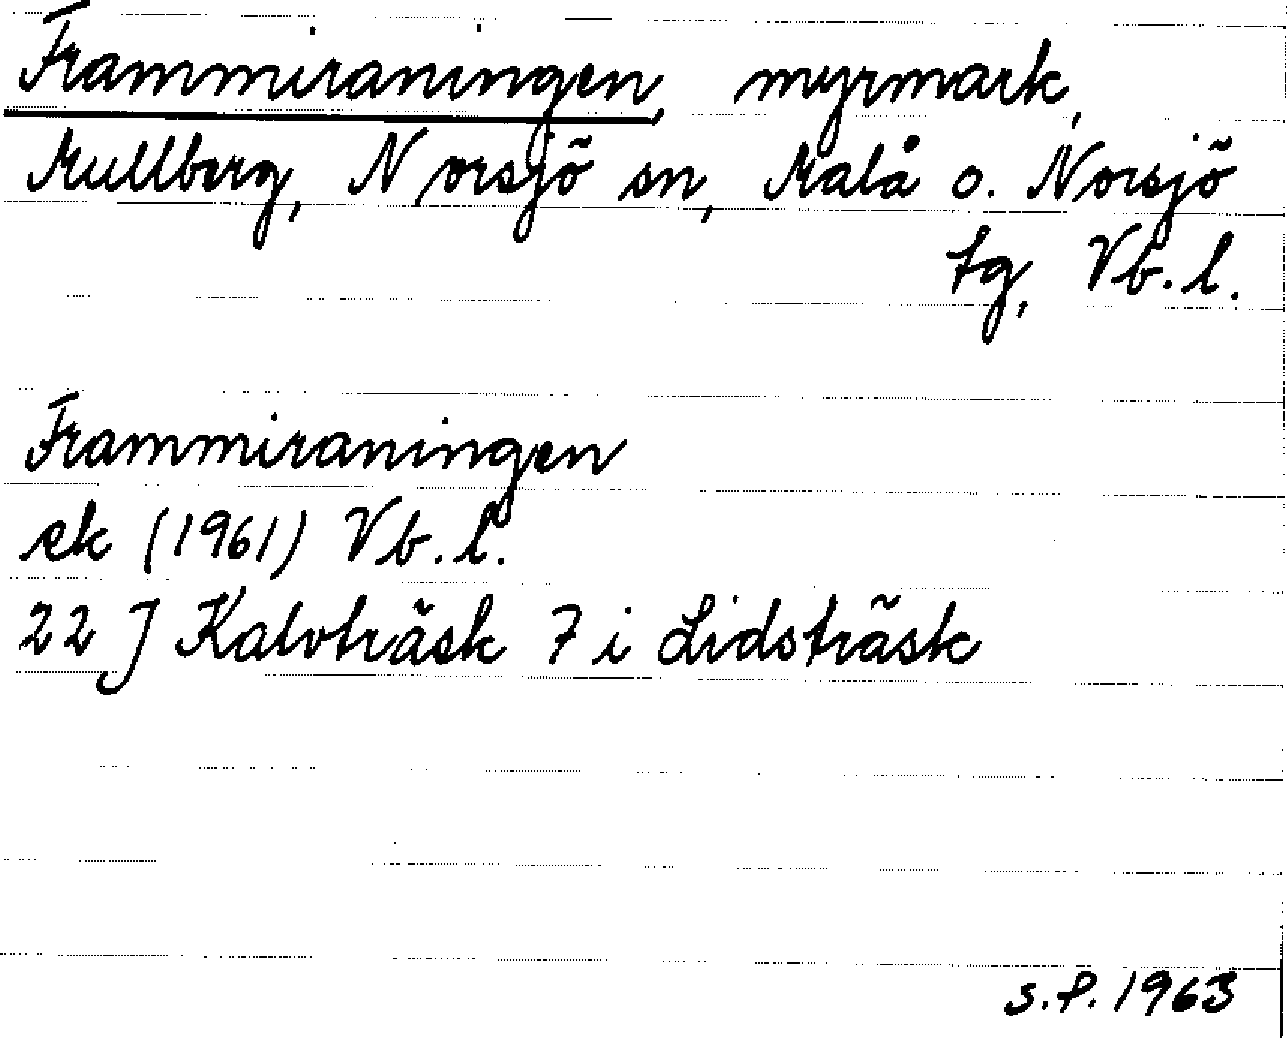 Frammiraningen, myrmark,
Mullberg, Norsjö sn, Malå o. Norsjö
tg, Vb. l.
Frammiraningen
ek (1961) Vb. l.
22 J Kalvträsk 7 i Lidsträsk
S.P. 1963